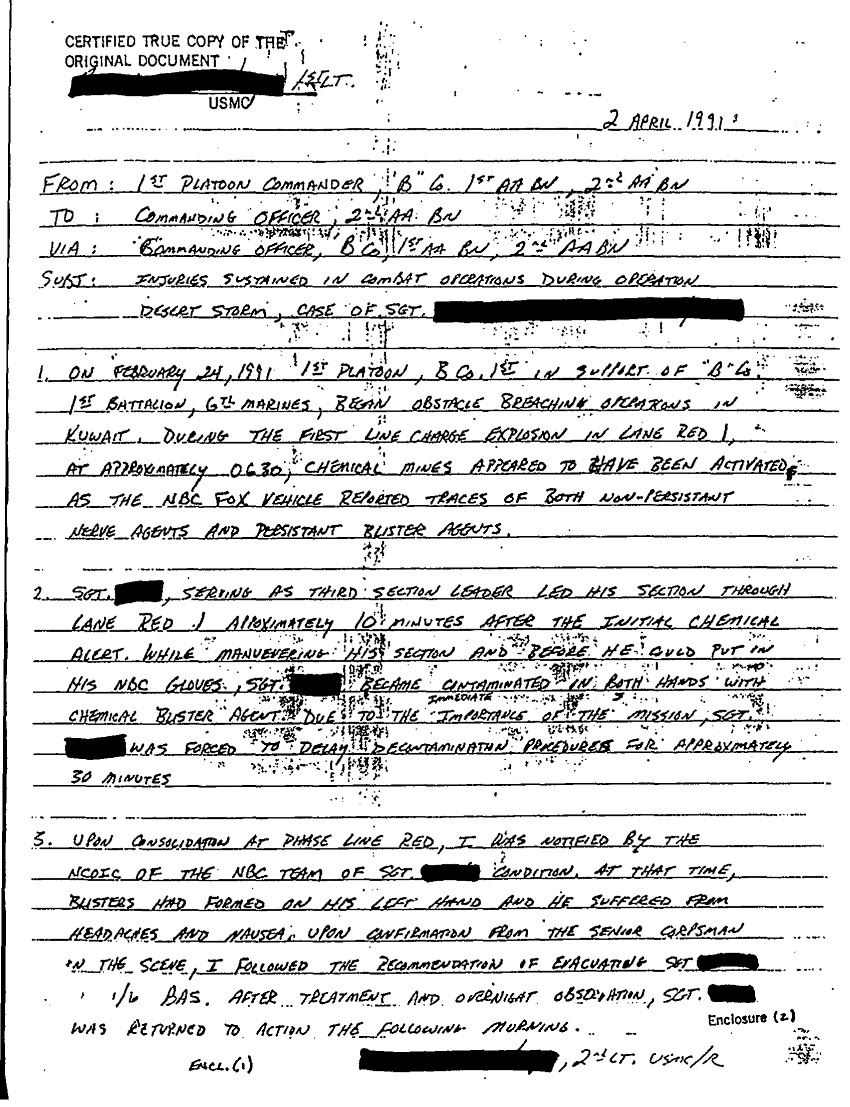 CERTIFIED TRUE COPY OF THE
ORIGINAL DOCUMENT
1ST LT.
USMC
2 APRIL 1991
FROM: 1ST PLATOON COMMANDER, "B" CO. 1ST AA BN, 2nd AA BN
TO: COMMANDING OFFICER, 2nd AA BN
VIA: COMMANDING OFFICER, B CO, 1ST AA BN, 2nd AA BN
SUBJ: INJURIES SUSTAINED IN COMBAT OPERATIONS DURING OPERATION
DESERT STORM, CASE OF SGT.
1. ON FEBRUARY 24, 1991 1ST PLATOON, B CO. 1ST IN SUPPORT OF "B" CO.
1ST BATTALION, 6TH MARINES, BEGAN OBSTACLE BREACHING OPERATIONS IN
KUWAIT. DURING THE FIRST LINE CHARGE EXPLOSION IN LANE RED 1,
AT APPROXIMATELY 0630, CHEMICAL MINES APPEARED TO HAVE BEEN ACTIVATED,
AS THE NBC FOX VEHICLE REPORTED TRACES OF BOTH NON-PERSISTANT
NERVE AGENTS AND PERSISTANT BLISTER AGENTS.
2. SGT. , SERVING AS THIRD SECTION LEADER LED HIS SECTION THROUGH
LANE RED 1 APOXIMATELY 10 MINUTES AFTER THE INITIAL CHEMICAL
ALERT. WHILE MANUEVERING HIS SECTION AND BEFORE HE COULD PUT IN
HIS NBC GLOVES, SGT. BECAME CONTAMINATED IN BOTH HANDS WITH
CHEMICAL BLISTER AGENT. DUE TO THE IMMEDIATE IMPORTANCE OF THE MISSION, SGT.
WAS FORCED TO DELAY DECONTAMINATION PROCEDURES FOR APPROXIMATELY
30 MINUTES
3. UPON CONSOLIDATION AT PHASE LINE RED, I WAS NOTIFIED BY THE
NCOIC OF THE NBC TEAM OF SGT. CONDITION. AT THAT TIME,
BLISTERS HAD FORMED ON HIS LEFT HAND AND HE SUFFERED FROM
HEADACHES AND NAUSEA. UPON CONFIRMATION FROM THE SENIOR CORPSMAN
IN THE SCENE, I FOLLOWED THE RECOMMENDATION OF EVACUATING SGT
1/6 BAS. AFTER TREATMENT AND OVERNIGHT OBSERVATION, SGT.
WAS RETURNED TO ACTION THE FOLLOWING MORNING.
Enclosure (2)
ENCL. (1)
, 2nd LT. USMC/R